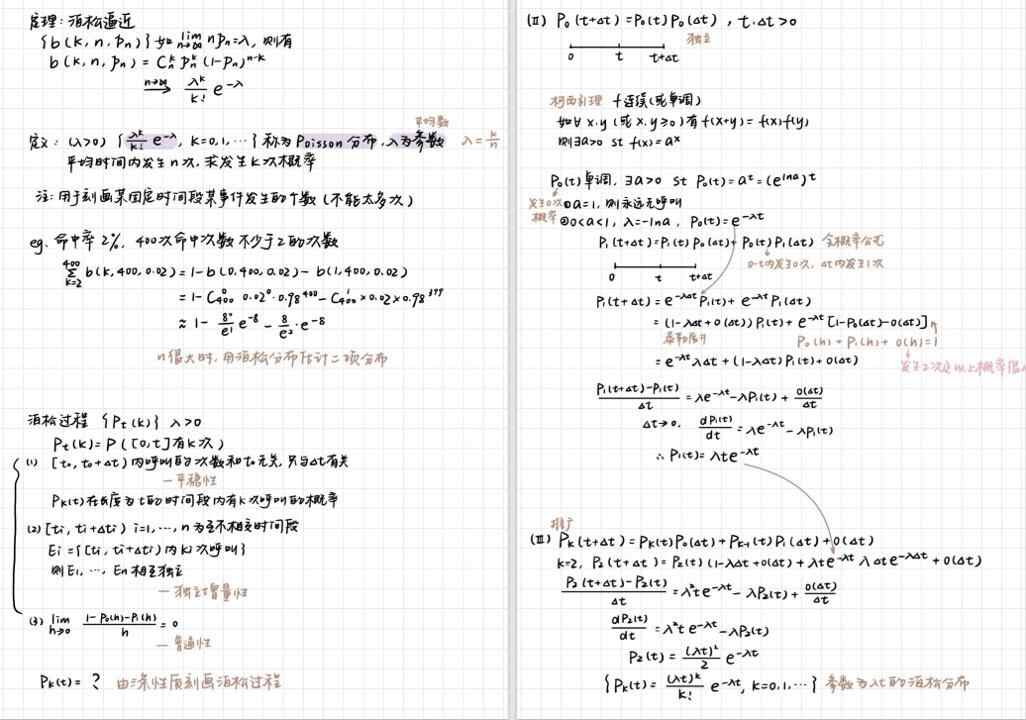 定理：泊松逼近
{b(k, n, pₙ)} 如 lim n→∞ npₙ=λ, 则有
b(k, n, pₙ) = Cₙᵏ pₙᵏ (1-pₙ)ⁿ⁻ᵏ
n→∞ ⟶ λᵏ/k! e^-λ
平均数
定义：(λ>0) {λᵏ/k! e^-λ, k=0,1,…} 称为 Poisson 分布, λ为参数 λ=k/n
平均时间内发生n次, 求发生k次概率
注: 用于刻画某固定时间段某事件发生的个数 (不能太多次)
eg. 命中率2%, 400次命中次数不少于2的次数
400 Σ k=2 b(k,400,0.02) = 1-b(0,400,0.02) - b(1,400,0.02)
= 1- C₄₀₀⁰ 0.02⁰·0.98⁴⁰⁰ - C₄₀₀¹ × 0.02 × 0.98³⁹⁹
n很大时, 用泊松分布估计二项分布
泊松过程 {Pt(k)} λ>0
Pt(k)= P([0,t]有k次)
(1) [t₀, t₀+Δt) 内呼叫的次数和t₀无关, 只与Δt有关
— 平稳性
Pk(t)在长度为t的时间段内有k次呼叫的概率
(2) [ti, ti+Δti) i=1,…, n 为互不相交时间段
Ei = {[ti, ti+Δti) 内ki次呼叫}
则E₁, …, En 相互独立
— 独立增量性
(3) lim h→0 1-P₀(h)-P₁(h)/h = 0
— 普通性
Pk(t) = ? 由三条性质刻画泊松过程
(II) P₀(t+Δt) = P₀(t) P₀(Δt), t.Δt>0
独立
0 t t+Δt
柯西引理 f连续(或单调)
如∀x.y (或x.y≥0) 有 f(x+y) = f(x)f(y)
则∃a>0 st f(x) = aˣ
P₀(t)单调, ∃a>0 st P₀(t) = aᵗ = (e^lna)t
发生0次 ①a=1, 则永远无呼叫
概率 ②0<a<1, λ=-lna, P₀(t)=e^-λt
P₁(t+Δt)=P₁(t) P₀(Δt)+ P₀(t) P₁(Δt) 全概率公式
0-t内发生0次, Δt内发生1次
0 t t+Δt
P₁(t+Δt) = e^-λΔt P₁(t) + e^-λt P₁(Δt)
= (1-λΔt+o(Δt)) P₁(t) + e^-λt [1-P₀(Δt)-o(Δt)]
泰勒展开 P₀(h) + P₁(h) + o(h)=1
= e^-λt λΔt + (1-λΔt) P₁(t) + o(Δt)
P₁(t+Δt)-P₁(t)/Δt = λe^-λt - λP₁(t) + o(Δt)/Δt
Δt→0. dP₁(t)/dt = λe^-λt - λP₁(t)
∴ P₁(t) = λte^-λt
推广
(III) Pk(t+Δt) = Pk(t)P₀(Δt) + Pk-1(t) P₁(Δt) + o(Δt)
k=2, P₂(t+Δt) = P₂(t) (1-λΔt+o(Δt)) + λte^-λt λΔte^-λΔt + o(Δt)
P₂(t+Δt)-P₂(t)/Δt = λ²te^-λt - λP₂(t) + o(Δt)/Δt
dP₂(t)/dt = λ²te^-λt - λP₂(t)
P₂(t) = (λt)²/2 e^-λt
{Pk(t) = (λt)ᵏ/k! e^-λt, k=0,1,…} 参数为λt的泊松分布